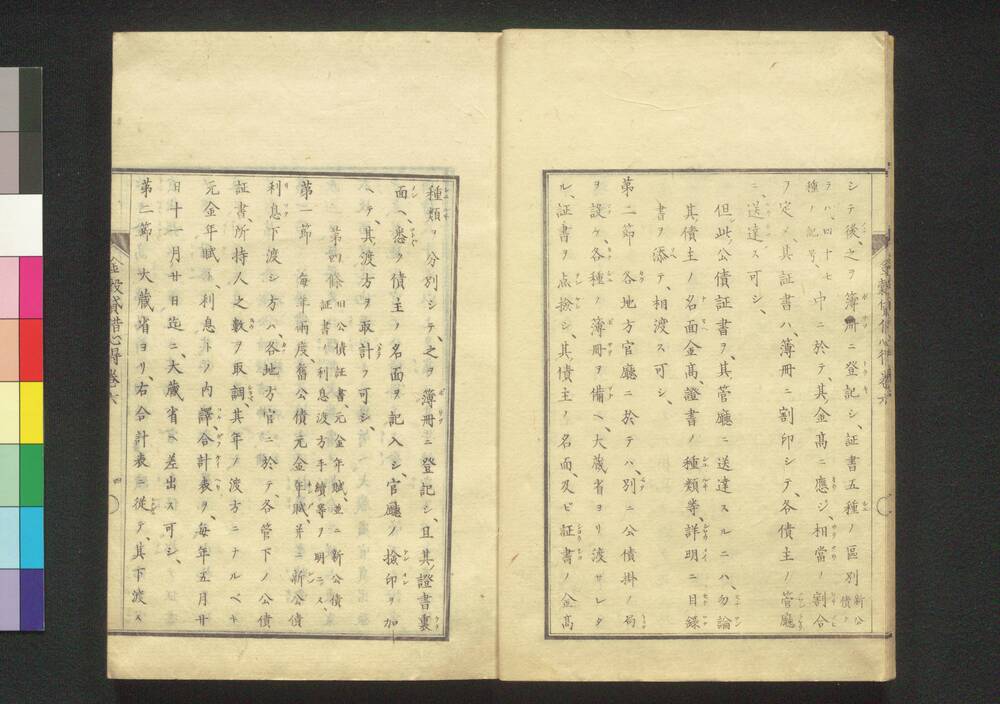 シテ後、之ヲ簿冊ニ登記シ、証書五種ノ區別 新公債ノ
種ノ記号
テハ、四十七
中ニ於テ、其金高ニ應シ、相當ノ割合
ヲ定メ、其証書ハ、簿冊ニ割印シテ、各債主ノ管廳
ニ、送達ス可シ、
但此公債証書ヲ、其管廳ニ送達スルニハ、勿論
其債主ノ名面金高、證書ノ種類等、詳明ニ目録
書ヲ添テ、相渡ス可シ、
第二節 各地方官廳ニ於テハ、別ニ公債掛ノ局
ヲ設ケ、各種ノ簿冊ヲ備ヘ、大蔵省ヨリ渡サレタ
ル、証書ヲ点撿シ、其債主ノ名面、及ビ証書ノ金高
種類ヲ分別シテ、之ヲ簿冊ニ登記シ、且其證書裏
面ヘ、悉ク債主ノ名面ヲ記入シ、官廳ノ撿印ヲ加
ヘテ、其渡方ヲ取計フ可シ、
第四條 旧公債証書元金年賦、並ニ新公債
証書ノ利息渡方手續等ヲ明ニス、
第一節 毎年兩度、舊公債元金年賦、并ニ新公債
利息下渡シ方ハ、各地方官ニ於テ、各管下ノ公債
証書、所持人之数ヲ取調、其年ノ渡方ニナルベキ
元金年賦ト、利息トノ内譯、合計表ヲ、毎年五月廿
日十一月廿日迄ニ、大蔵省ヘ差出ス可シ、
第二節 大蔵省ヨリ、右合計表ニ從テ、其下渡ス
金穀貸借心得巻六
四